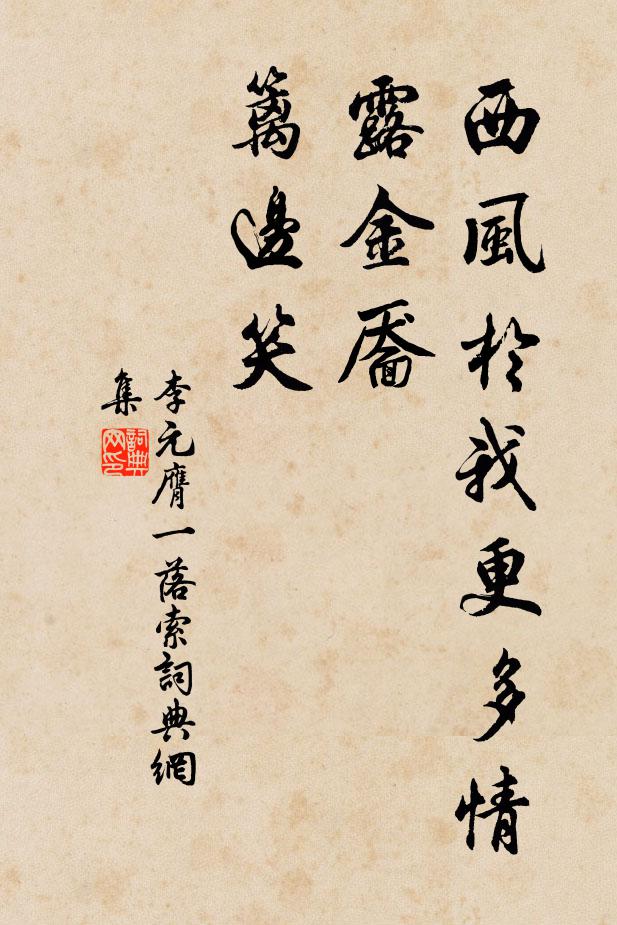 西風於我更多情
露金靨
籬邊笑
李元膺一落索詞典網
集
詞典
网印